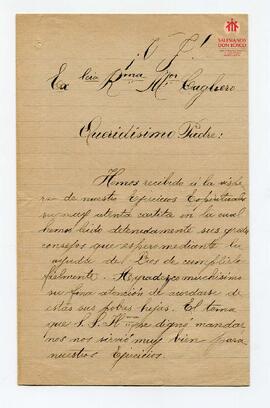 SALESIANOS
DON BOSCO
¡ V. J. !
Ex.ma Rma Mor Cagliero
Queridísimo Padre:
Hemos recibido á la víspe
ra de nuestro Ejercicios Espirituales
su muy atenta cartita en la cual
hemos leído detenidamente sus gratos
consejos que espero mediante la
ayuda de Dios de cumplirlo
fielmente. Agradezco muchísimo
su fina atención de acordarse de
estas sus pobres hijas. El tema
que S. S. Rma se dignó mandar
nos nos sirvió muy bien para
nuestros Ejercicios.